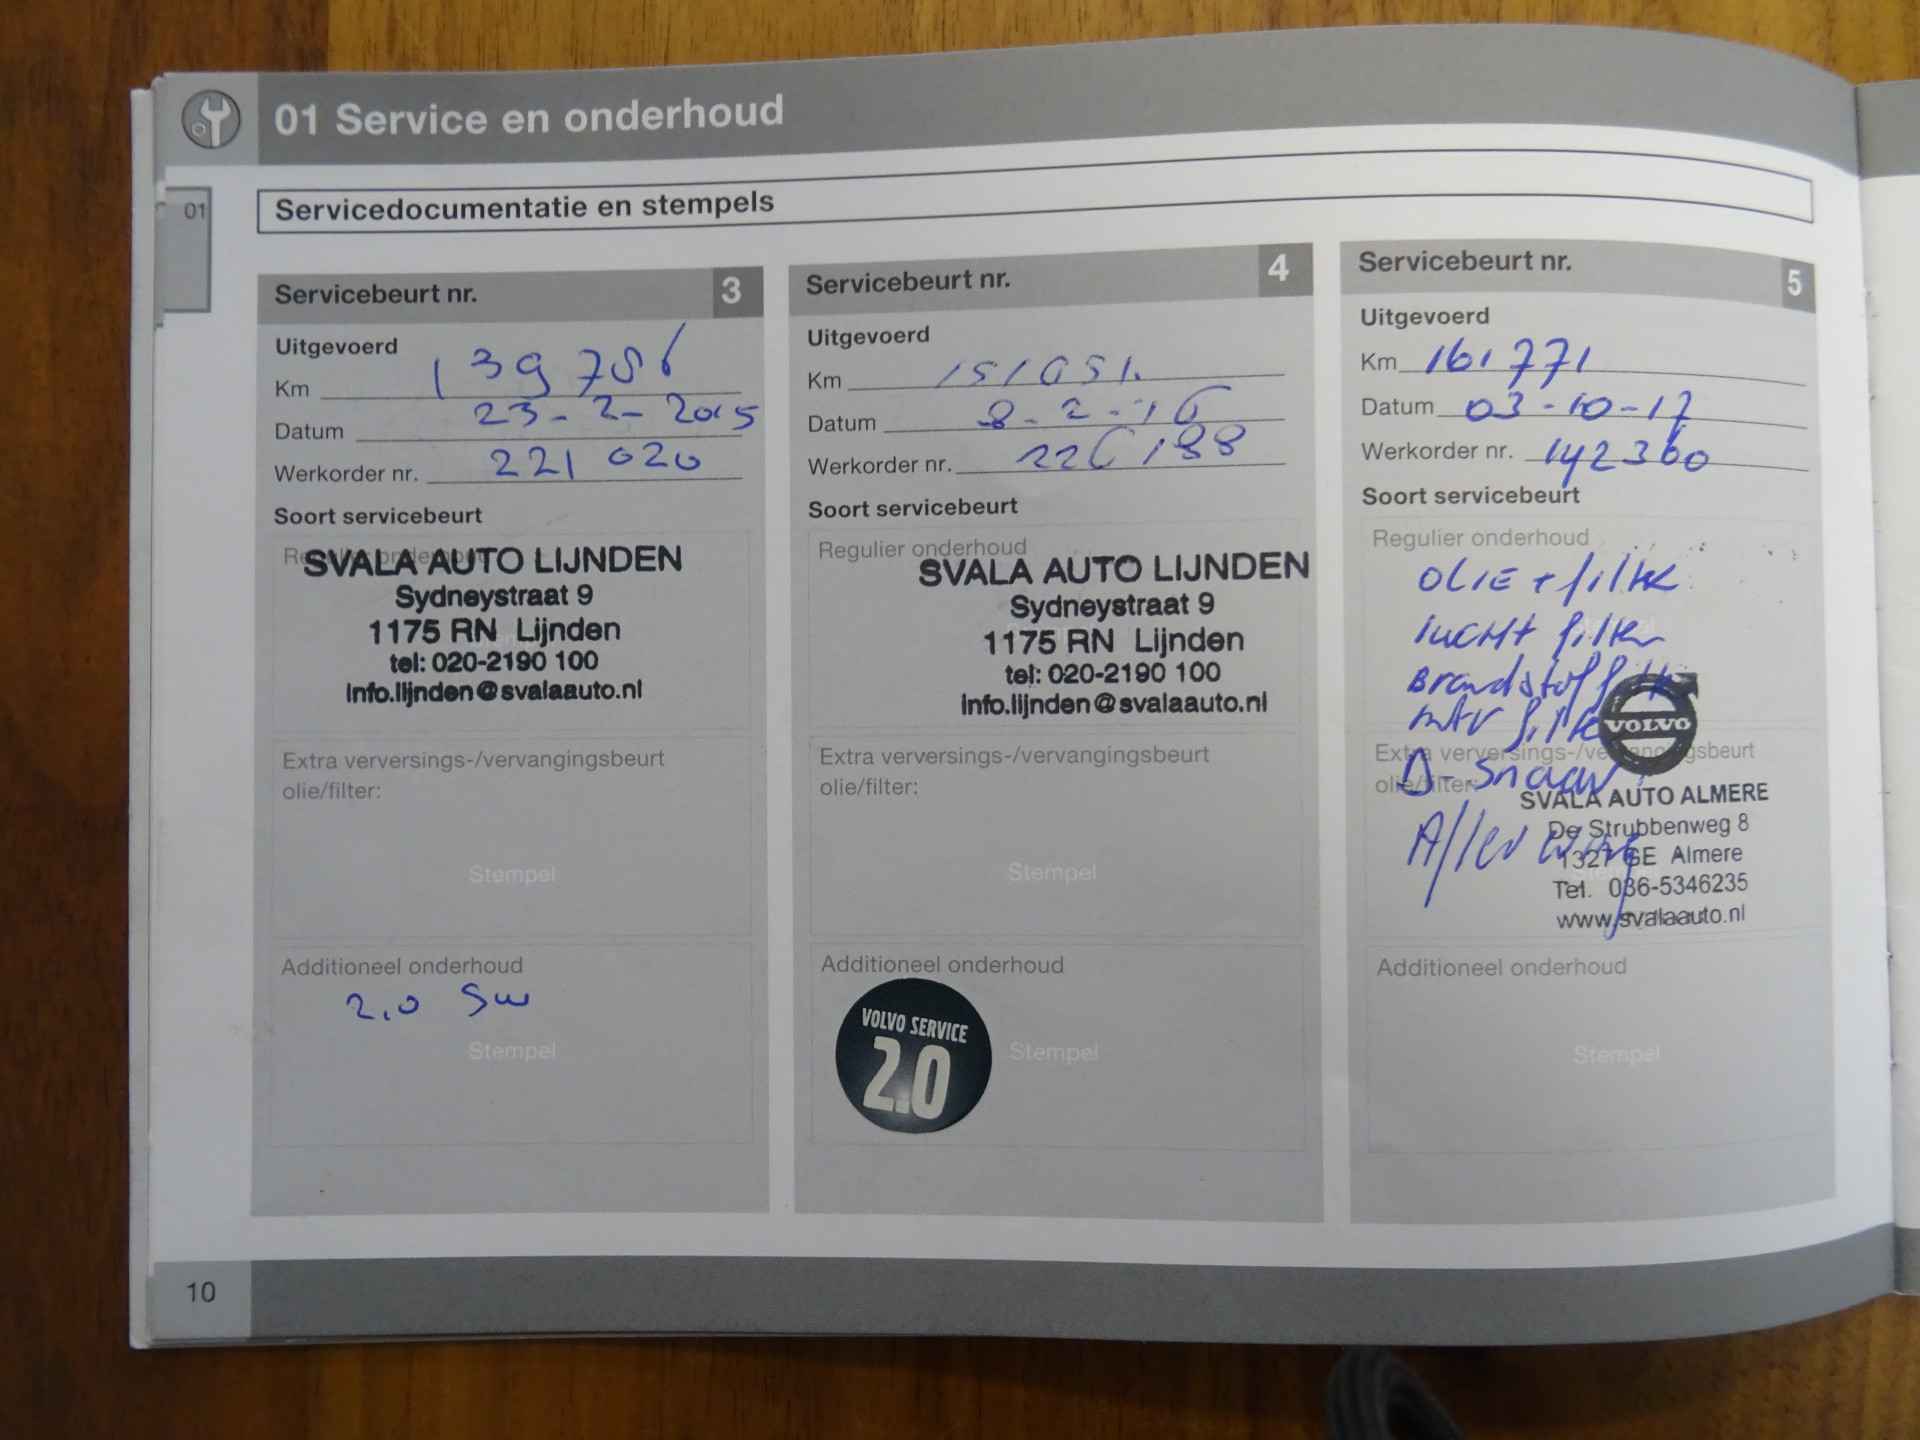 01 Service en onderhoud
01
Servicedocumentatie en stempels
Servicebeurt nr. 3
Uitgevoerd
Km 139 756
Datum 23-2-2015
Werkorder nr. 221 020
Soort servicebeurt
Regulier onderhoud
SVALA AUTO LIJNDEN
Sydneystraat 9
1175 RN Lijnden
tel: 020-2190 100
info.lijnden@svalaauto.nl
Extra verversings-/vervangingsbeurt
olie/filter:
Stempel
Additioneel onderhoud
2.0 SW
Stempel
Servicebeurt nr. 4
Uitgevoerd
Km 151051.
Datum 8-2-16
Werkorder nr. 226188
Soort servicebeurt
Regulier onderhoud
SVALA AUTO LIJNDEN
Sydneystraat 9
1175 RN Lijnden
tel: 020-2190 100
info.lijnden@svalaauto.nl
Extra verversings-/vervangingsbeurt
olie/filter:
Stempel
Additioneel onderhoud
VOLVO SERVICE
2.0
Stempel
Servicebeurt nr. 5
Uitgevoerd
Km 161771
Datum 03-10-17
Werkorder nr. 142360
Soort servicebeurt
Regulier onderhoud
OLIE + filter
lucht filter
Brandstof filter
intr filter
VOLVO
Extra verversings-/vervangingsbeurt
olie/filter:
D-snaar
SVALA AUTO ALMERE
De Strubbenweg 8
1327 GE Almere
Tel. 036-5346235
www.svalaauto.nl
Additioneel onderhoud
Stempel
10